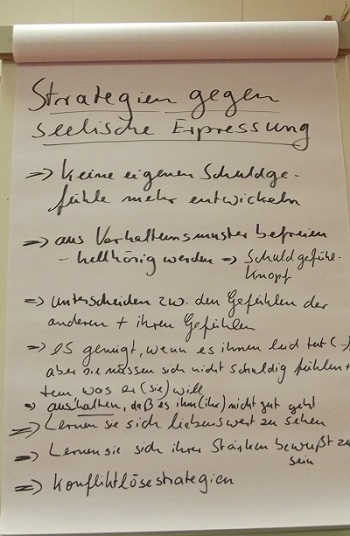 Strategien gegen
seelische Erpressung
=> keine eigenen Schuldge-
fühle mehr entwickeln
=> aus Verhaltensmuster befreien
- hellhörig werden -> Schuldgefühl-
knopf
=> unterscheiden zw. den Gefühlen der
anderen + ihren Gefühlen
=> es genügt, wenn es ihnen leid tut (...)
aber sie müssen sich nicht schuldig fühlen +
tun was er (sie) will
=> aushalten, daß es ihm (ihr) nicht gut geht
=> Lernen sie sich liebenswert zu sehen
=> Lernen sie sich ihrer Stärken bewußt zu
sein
=> Konfliktlösestrategien